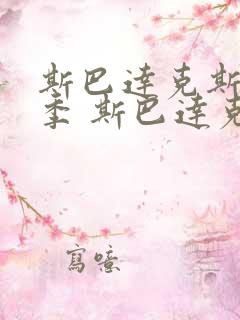 斯巴達克斯
季 斯巴達克
寫噫